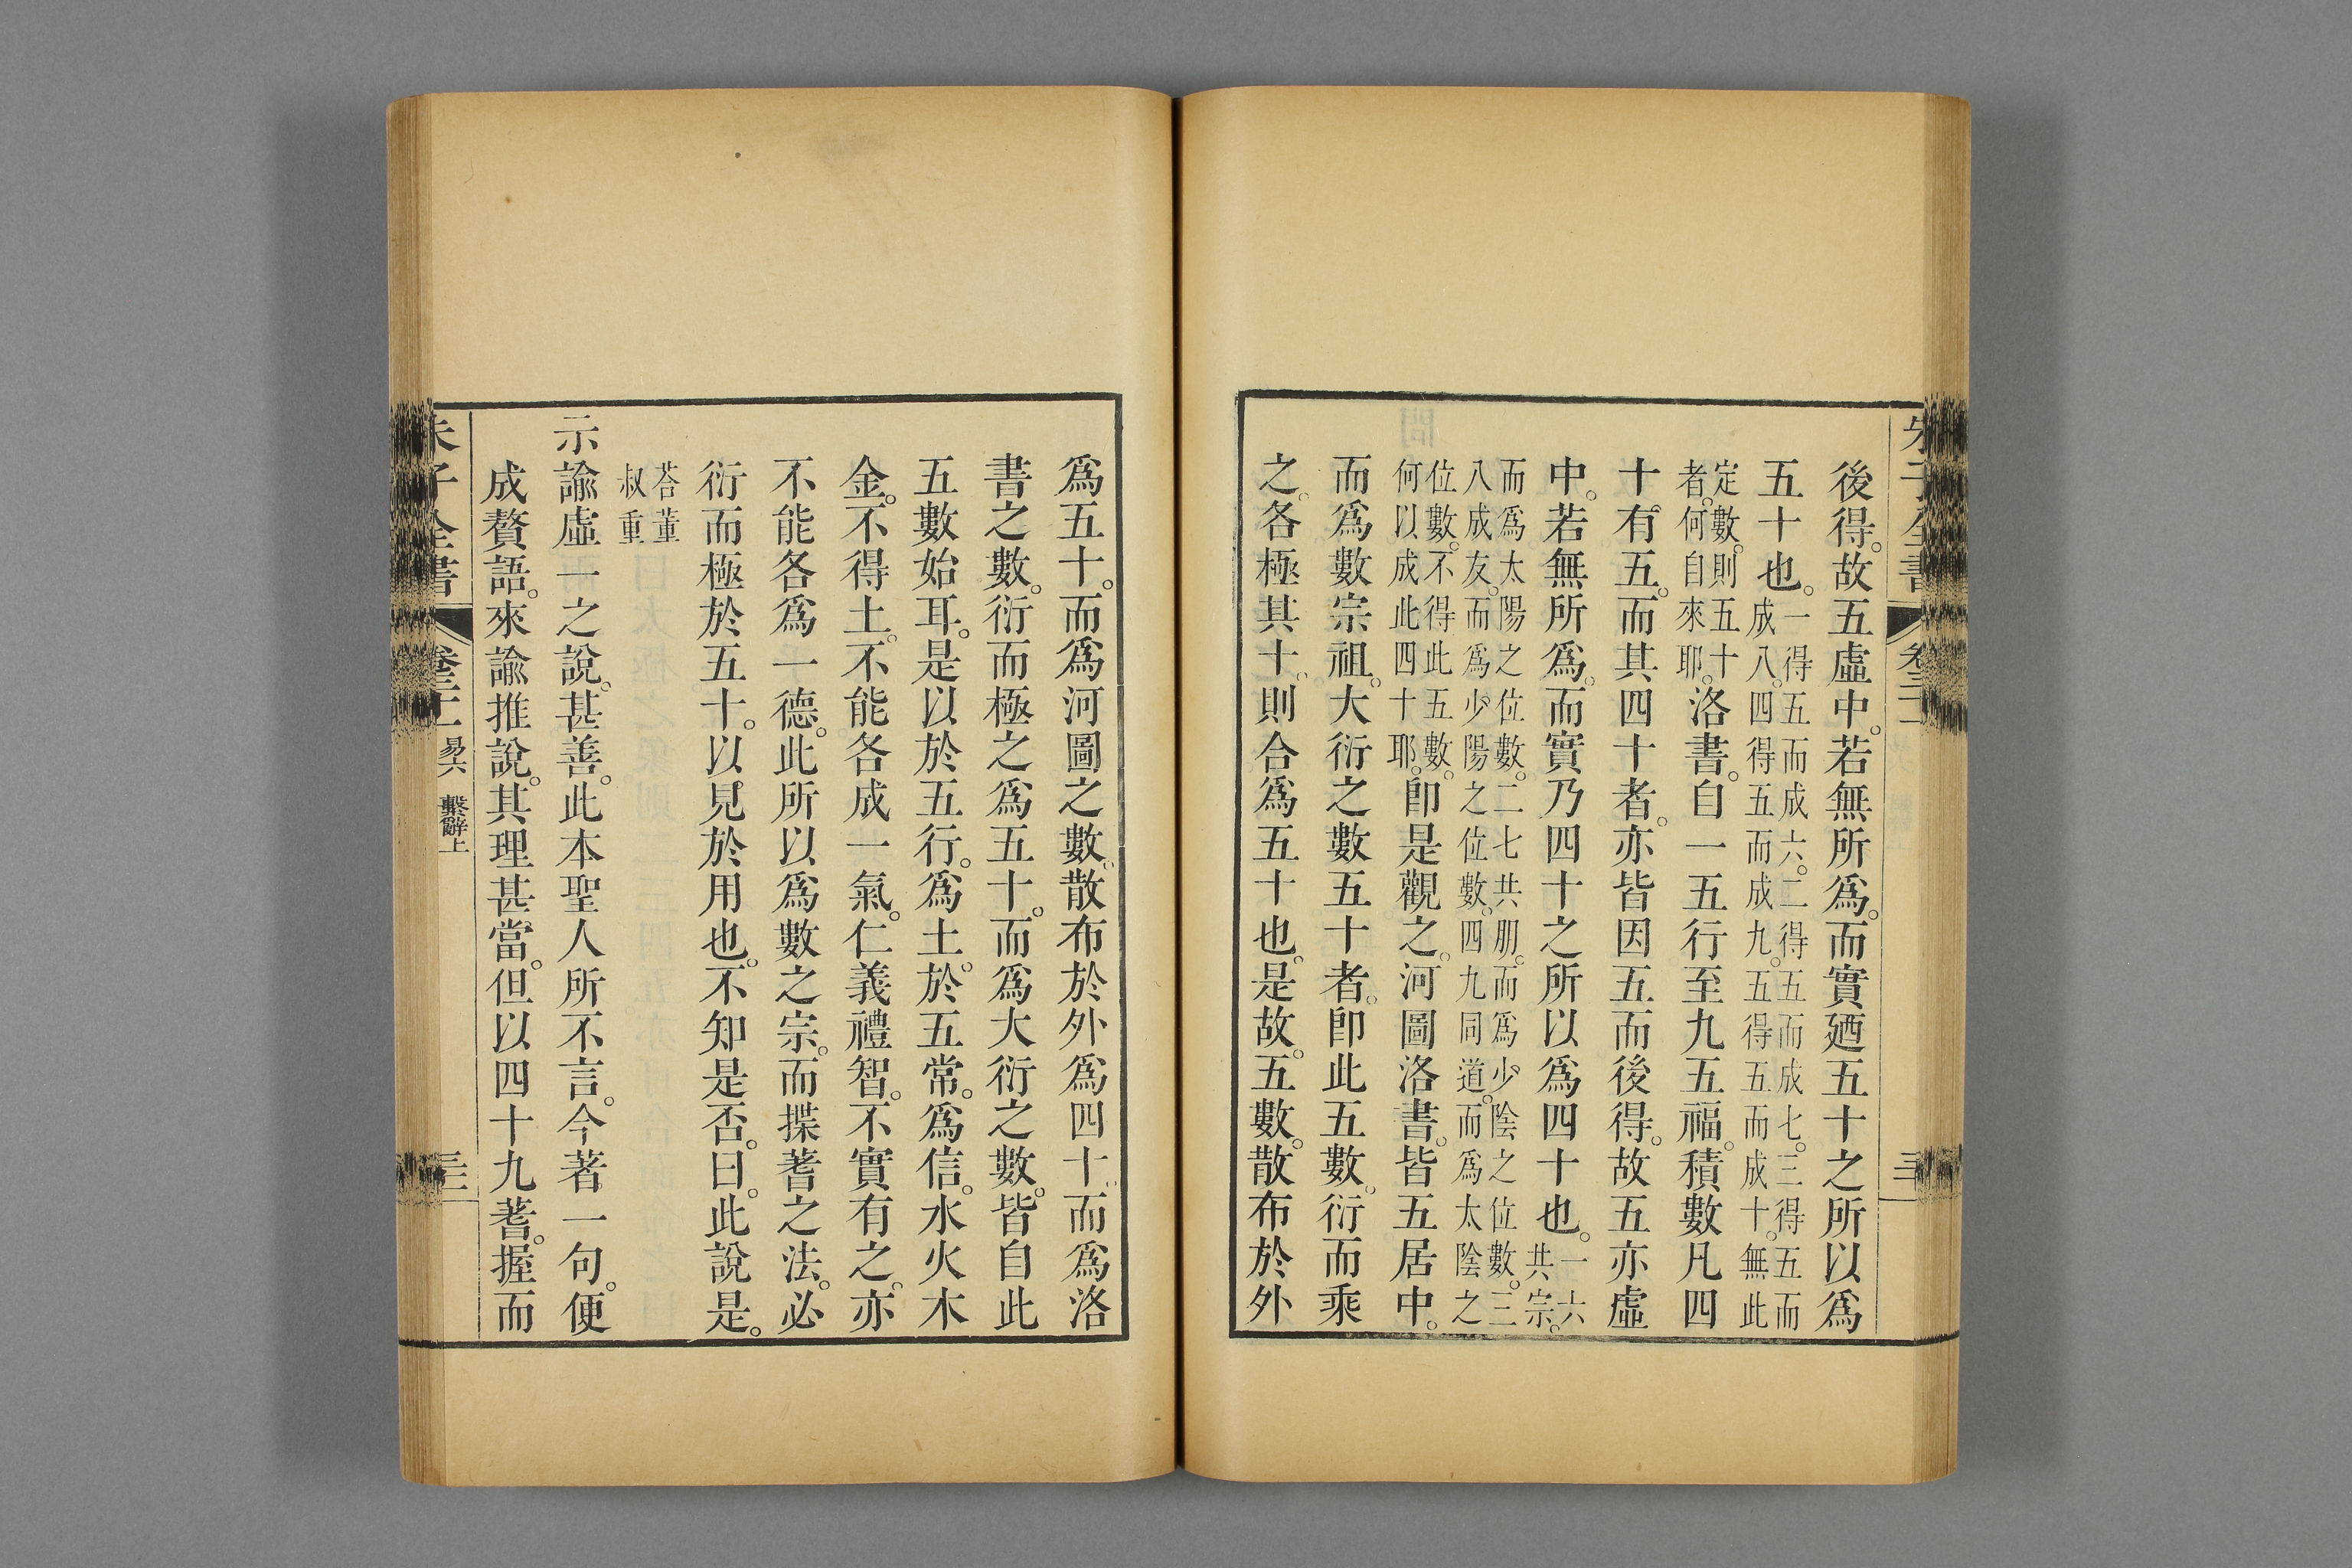 後得。故五虛中。若無所爲。而實廼五十之所以爲
五十也。一得五而成六。二得五而成七。三得五而
成八。四得五而成九。五得五而成十。無此
定數。則五十
者。何自來耶。洛書。自一五行至九五福。積數凡四
十有五。而其四十者。亦皆因五而後得。故五亦虛
中。若無所爲。而實乃四十之所以爲四十也。一六
共宗。
而爲太陽之位數。二七共朋。而爲少陰之位數。三
八成友。而爲少陽之位數。四九同道。而爲太陰之
位數。不得此五數。
何以成此四十耶。卽是觀之。河圖洛書。皆五居中。
而爲數宗祖。大衍之數五十者。卽此五數。衍而乘
之。各極其十。則合爲五十也。是故。五數。散布於外
爲五十。而爲河圖之數。散布於外爲四十。而爲洛
書之數。衍而極之爲五十。而爲大衍之數。皆自此
五數始耳。是以於五行。爲土。於五常。爲信。水火木
金。不得土。不能各成一氣。仁義禮智。不實有之。亦
不能各爲一德。此所以爲數之宗。而揲蓍之法。必
衍而極於五十。以見於用也。不知是否。曰。此說是。
荅董
叔重
示諭虛一之說。甚善。此本聖人所不言。今著一句。便
成贅語。來諭推說。其理甚當。但以四十九蓍。握而
朱子全書
易六
繫辭上